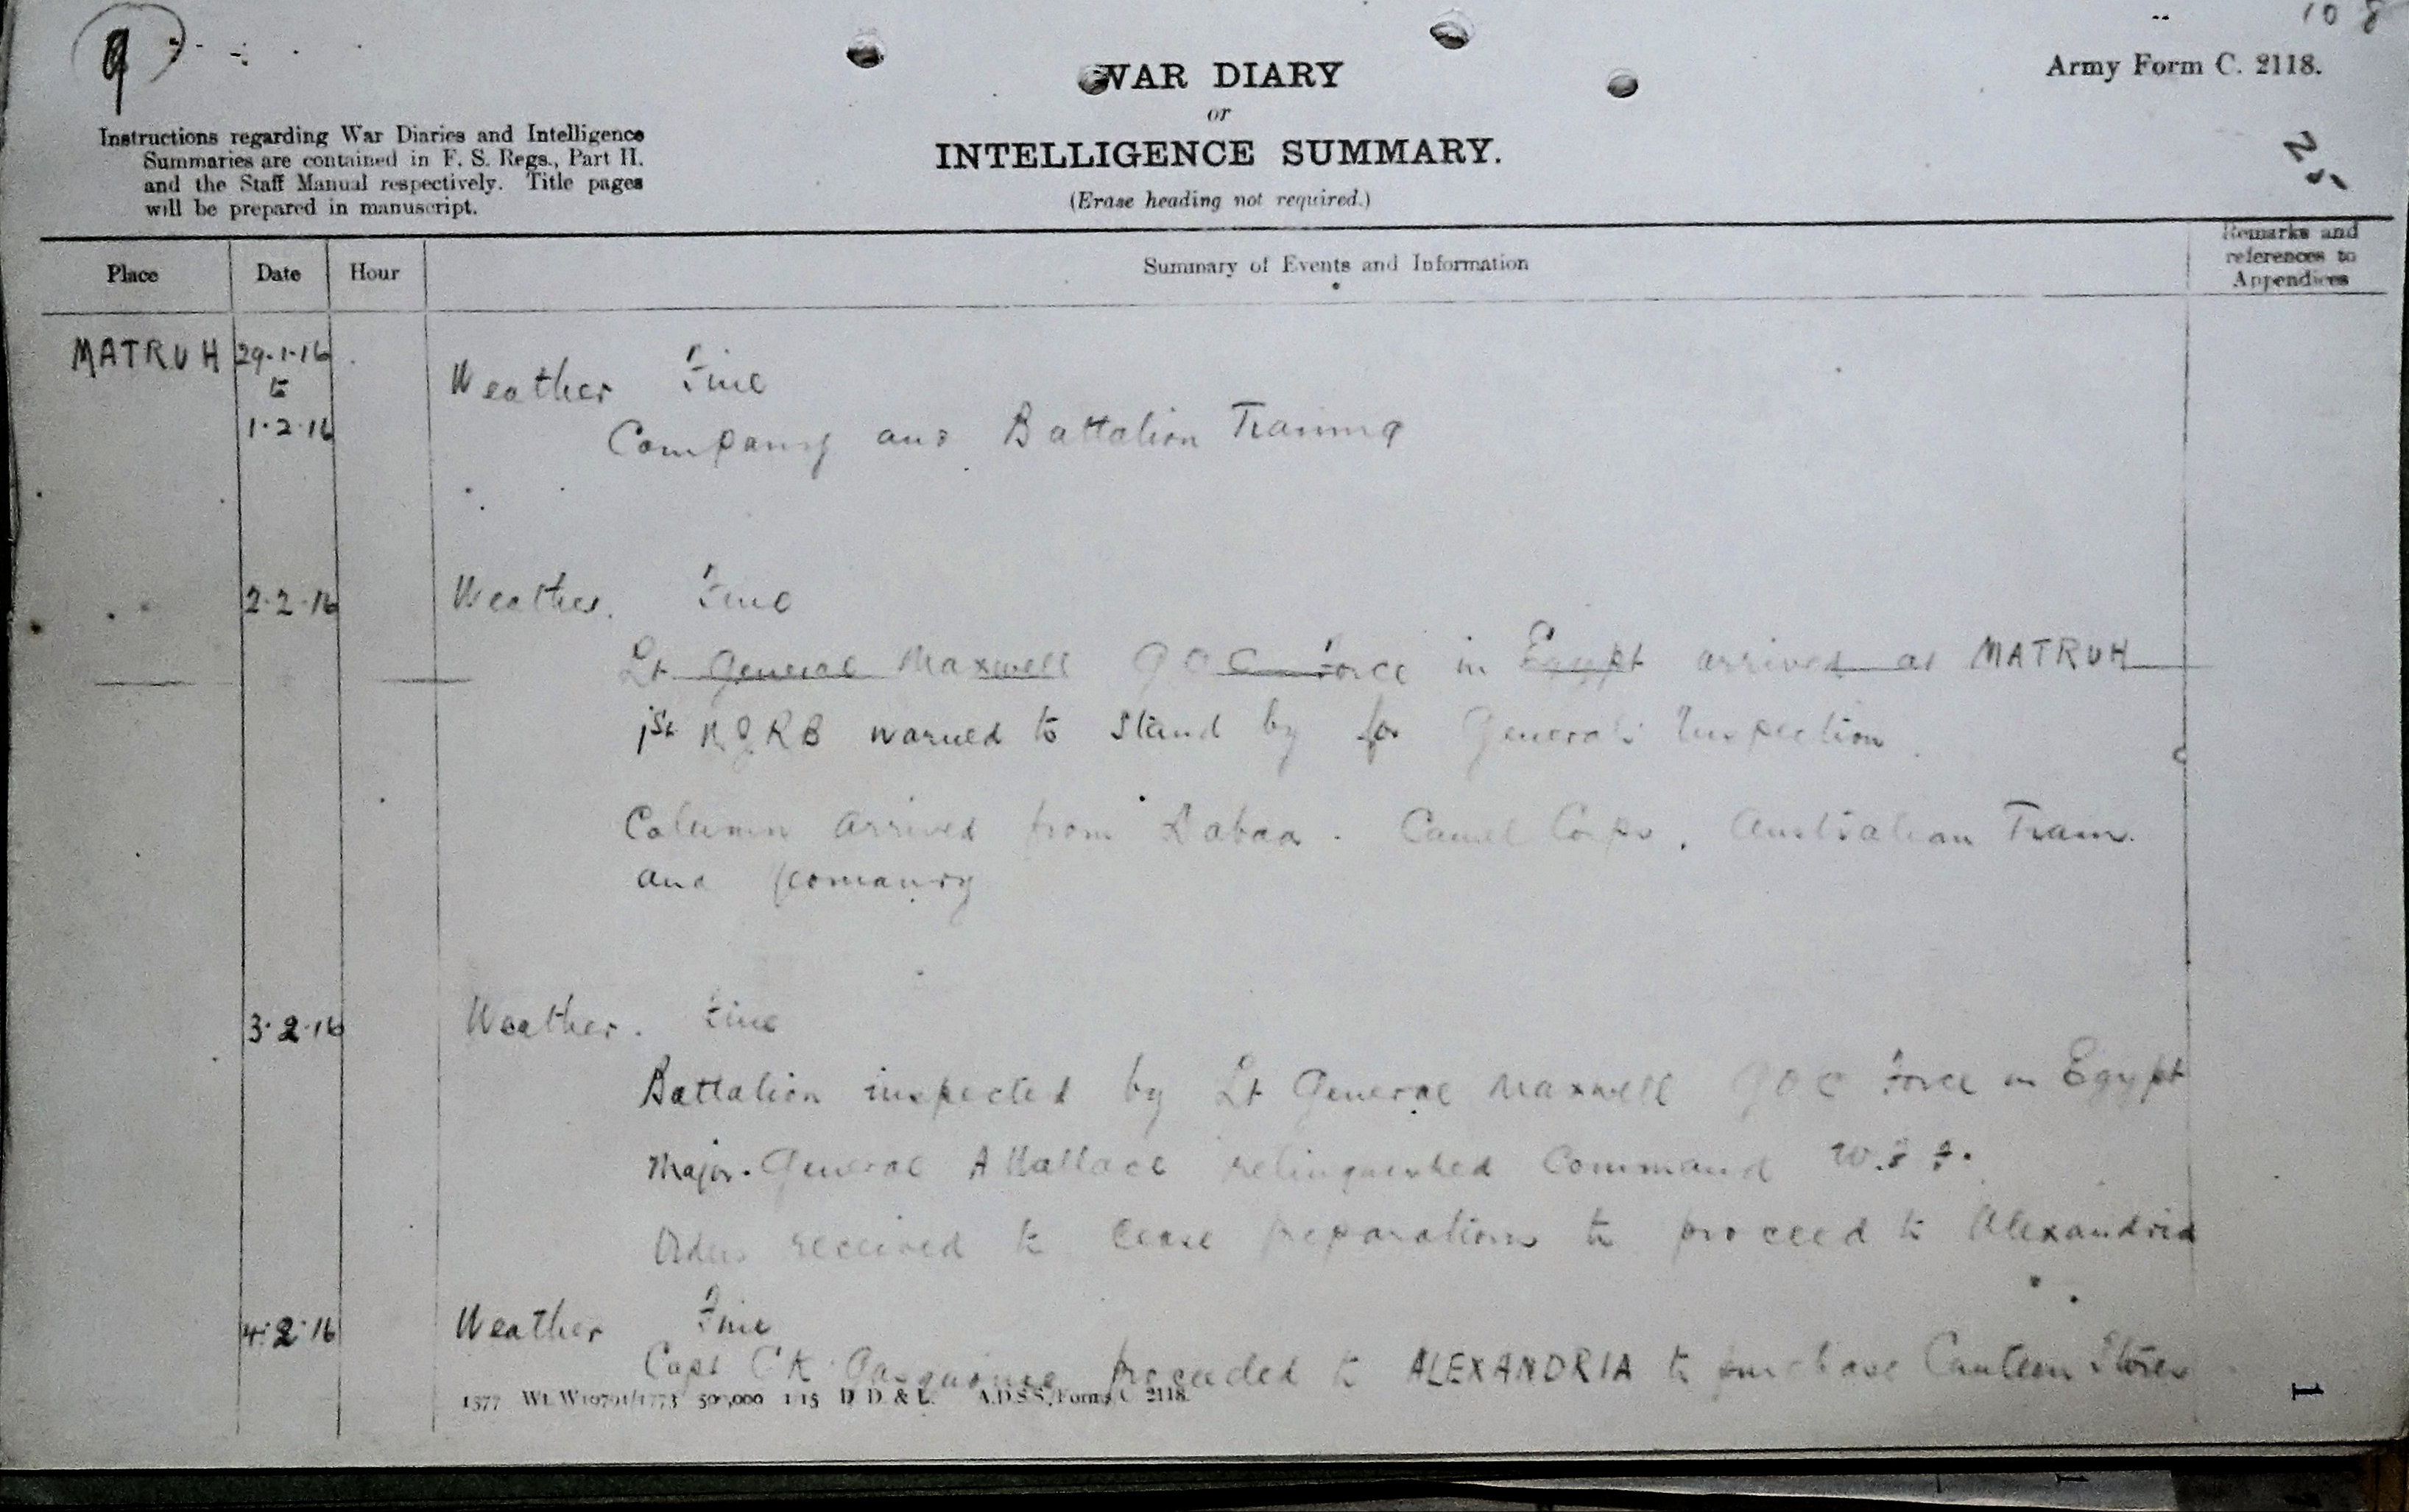 9
10 8
WAR DIARY
or
INTELLIGENCE SUMMARY.
(Erase heading not required.)
Army Form C. 2118.
Instructions regarding War Diaries and Intelligence
Summaries are contained in F. S. Regs., Part II.
and the Staff Manual respectively. Title pages
will be prepared in manuscript.
Place Date Hour Summary of Events and Information Remarks and
references to
Appendices
MATRUH 29.1.16
to
1.2.16
Weather Fine
Company and Battalion Training
2.2.16 Weather. Fine
Lt General Maxwell G O C Force in Egypt arrived at MATRUH
1st warned to stand by for Generals Inspection.
Column arrived from Dabaa. Camel Corps, Australian Train.
and Yeomanry
3.2.16 Weather. Fine
Battalion inspected by Lt General Maxwell G O C Force in Egypt
Major-General A Wallace relinquished Command W.F.F.
Orders received to cease preparations to proceed to Alexandria
4.2.16 Weather Fine
Capt C K proceeded to ALEXANDRIA to purchase Canteen Stores
1577 Wt. W10791/1773 500,000 1/15 D. D. & L. A.D.S.S./Forms/C. 2118.